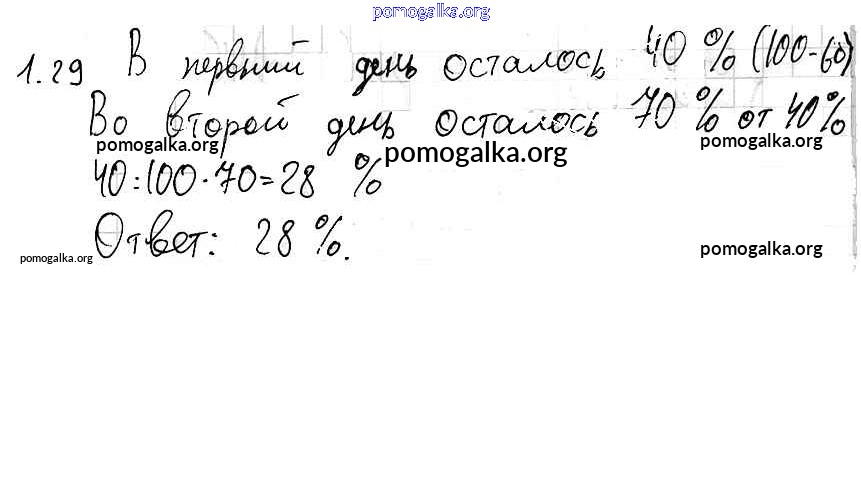 pomogalka.org
1.29 В первый день осталось 40 % (100-60)
Во второй день осталось 70 % от 40%
pomogalka.org pomogalka.org pomogalka.org
40:100·70=28 %
Ответ: 28 %.
pomogalka.org pomogalka.org